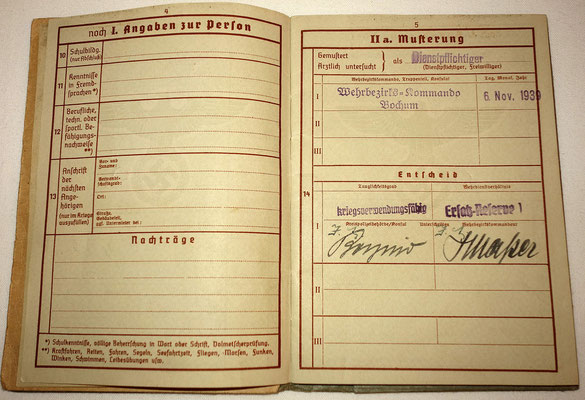 4
noch I. Angaben zur Person
10 Schulbildg. (nur Abschluß)
11 Kenntnisse in Fremdsprachen *)
12 Berufliche, techn. oder sportl. Befähigungsnachweise **)
13 Anschrift der nächsten Angehörigen (nur im Kriege auszufüllen)
Vor- und Zuname:
Verwandtschaftsgrad:
Ort:
Straße, Gebäudeteil, ggf. Untermieter bei:
Nachträge
*) Schulkenntnisse, völlige Beherrschung in Wort oder Schrift, Dolmetscherprüfung.
**) Kraftfahren, Reiten, Fahren, Segeln, Seefahrtzeit, Fliegen, Morsen, Funken,
Winken, Schwimmen, Leibesübungen usw.
5
II a. Musterung
Gemustert
Ärztlich untersucht
als Dienstpflichtiger
(Dienstpflichtiger, Freiwilliger)
Wehrbezirkskommando, Truppenteil, Konsulat
Tag, Monat, Jahr
I
Wehrbezirks-Kommando
Bochum
6. Nov. 1939
II
III
Entscheid
14
Tauglichkeitsgrad
Wehrdienstverhältnis
I
kriegsverwendungsfähig
Ersatz-Reserve I
Kreispolizeibehörde/Konsul
Unterschriften
Wehrbezirkskommandeur
II
III